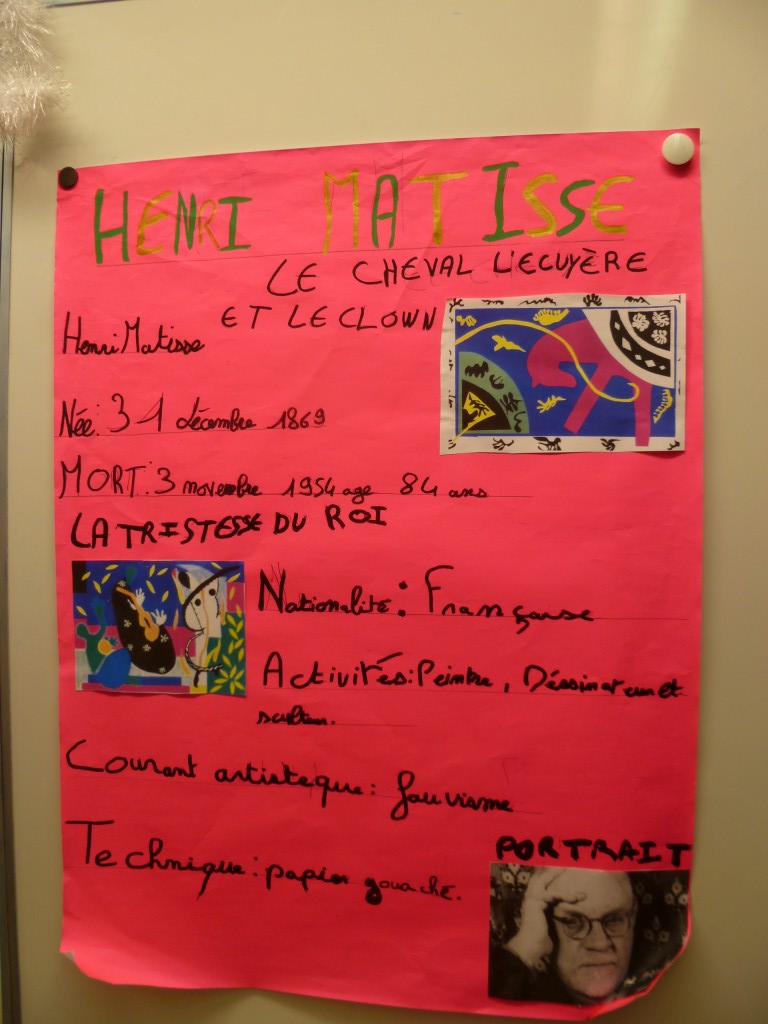 HENRI MATISSE
LE CHEVAL L'ECUYÈRE
ET LE CLOWN
Henri Matisse
Née: 31 décembre 1869
MORT: 3 novembre 1954 age 84 ans
LA TRISTESSE DU ROI
Nationalité: Française
Activités: Peintre, Déssinateur et
sculteur.
Courant artisteque: fauvisme
Technique: papier gouaché.
PORTRAIT